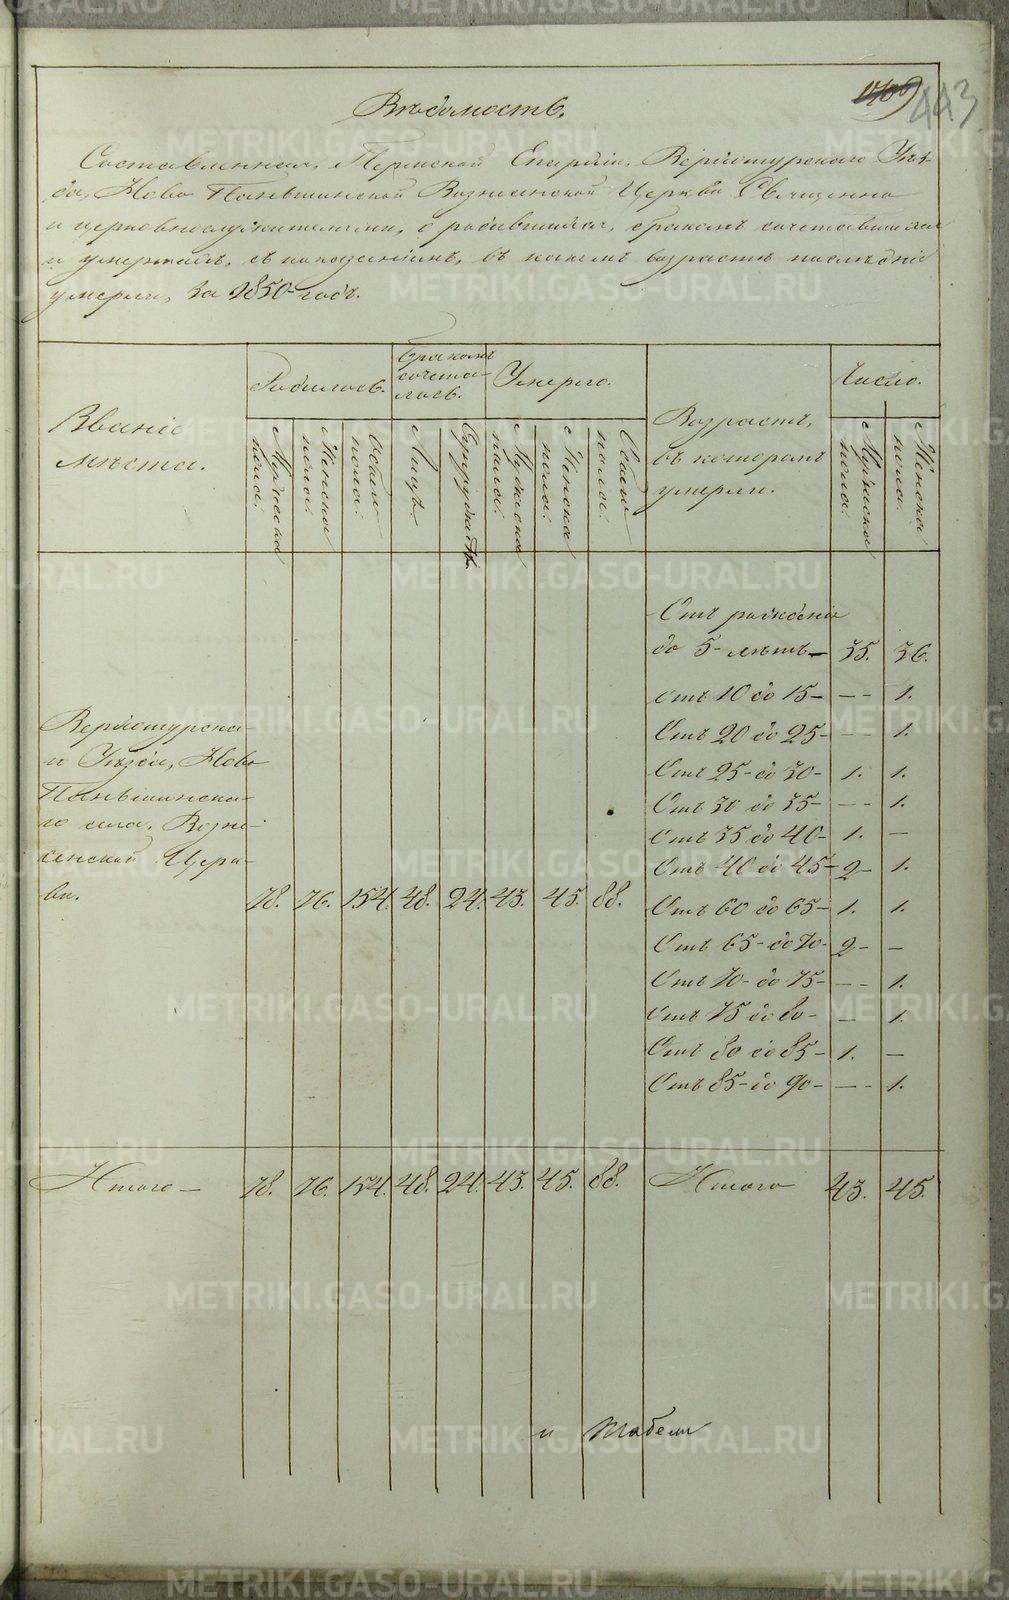 443
Вѣдомость.
Составленная, Пермской Епархіи, Верхотурскаго Уѣз-
да, Ново Паньшинской Вознесенской Церкви Священно
и церковнослужителями, о родившихся, бракомъ сочетавшихся
и умершихъ, съ показаніемъ, въ какомъ возрастѣ послѣдніе
умерли, за 1850 годъ.
Званіе мѣста.
Родилось.
Мужеска пола.
Женска пола.
Обоего пола.
Бракомъ сочета-лось.
Лицъ
Супружествъ
Умерло.
Мужеска пола.
Женска пола.
Обоего пола.
Возрастъ, въ которомъ умерли.
Число.
Мужеска пола.
Женска пола.
Верхотурска-
го Уѣзда, Ново
Паньшинска-
го села, Возне-
сенской Церк-
ви. 78. 76. 154. 48. 24. 43. 45. 88.
Отъ рожденія
до 5 лѣтъ— 35. 36.
Отъ 10 до 15— —— 1.
Отъ 20 до 25— —— 1.
Отъ 25 до 30— 1. 1.
Отъ 30 до 35— —— 1.
Отъ 35 до 40— 1. —
Отъ 40 до 45— 2— 1.
Отъ 60 до 65— 1. 1.
Отъ 65 до 70— 2— —
Отъ 70 до 75— —— 1.
Отъ 75 до 80— — 1.
Отъ 80 до 85— 1. —
Отъ 85 до 90— —— 1.
Итого — 78. 76. 154. 48. 24. 43. 45. 88. Итого 43. 45.
и табели
METRIKI.GASO-URAL.RU